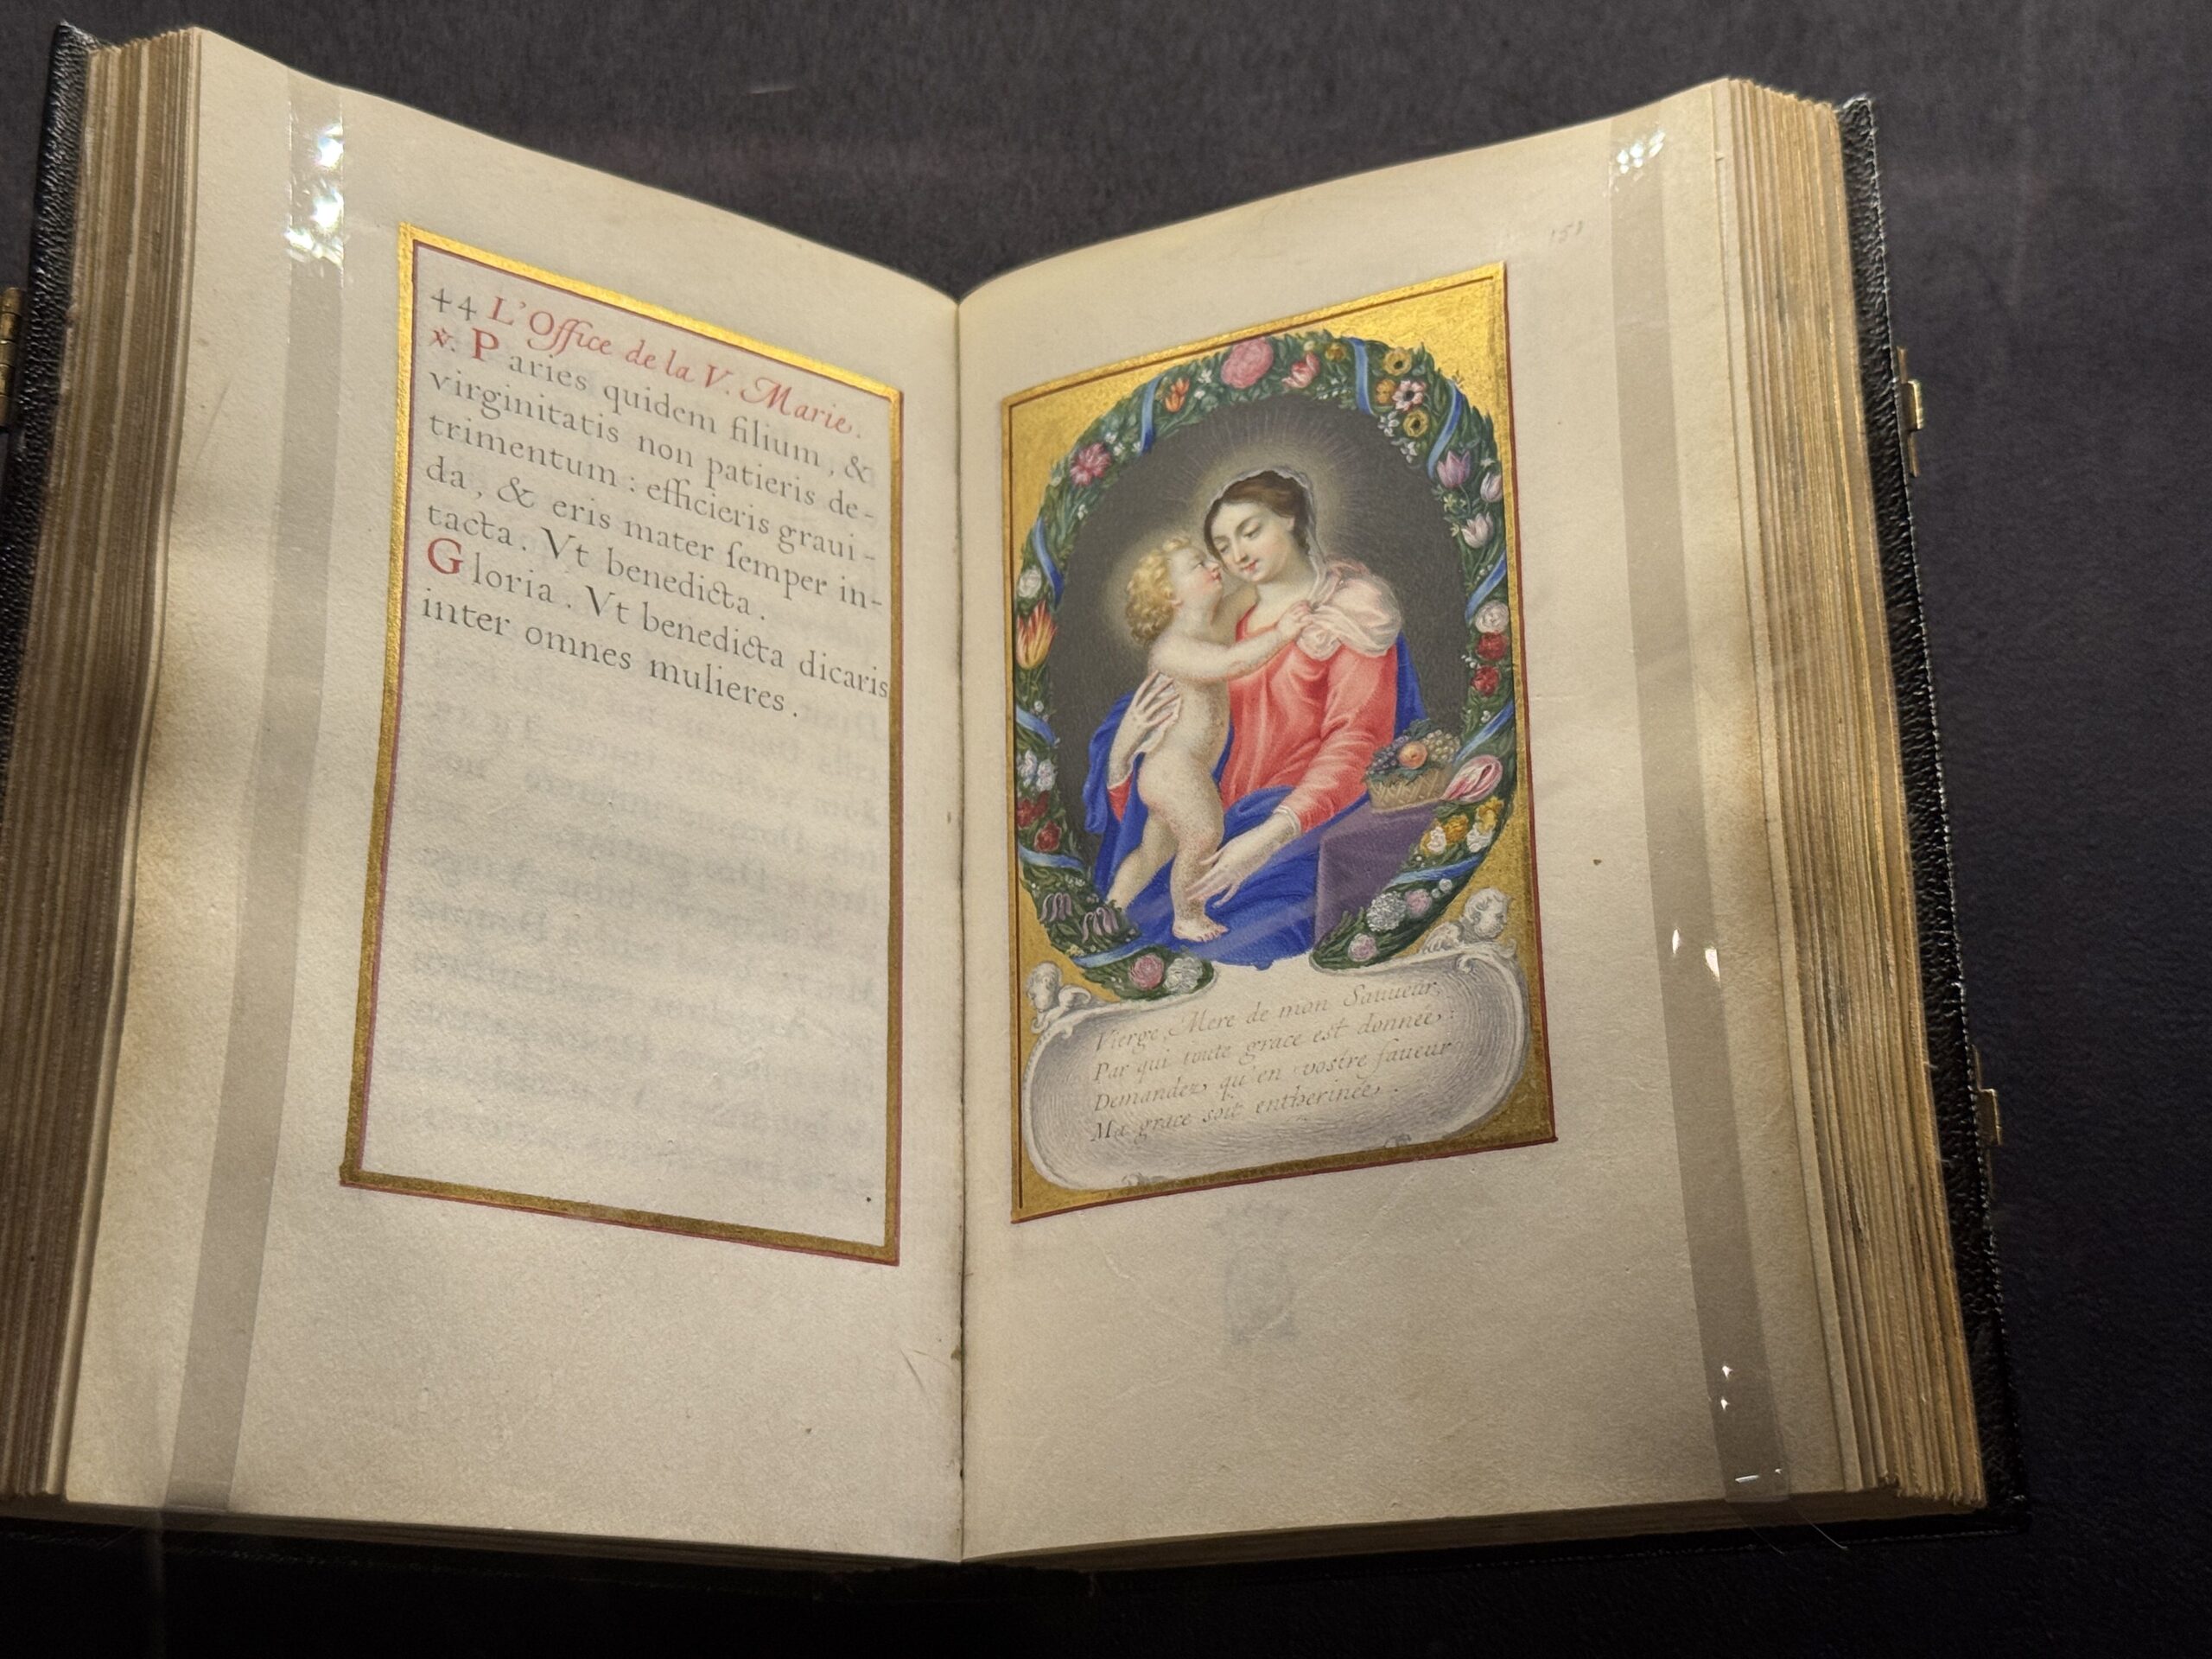 44 L'Office de la V. Marie.
℣. Paries quidem filium, &
virginitatis non patieris de-
trimentum : efficieris graui-
da, & eris mater ſemper in-
tacta. Vt benedicta.
Gloria. Vt benedicta dicaris
inter omnes mulieres.
151
Vierge, Mere de mon Sauueur,
Par qui toute grace est donnée,
Demandez, qu'en vostre faueur
Ma grace soit entherinée.